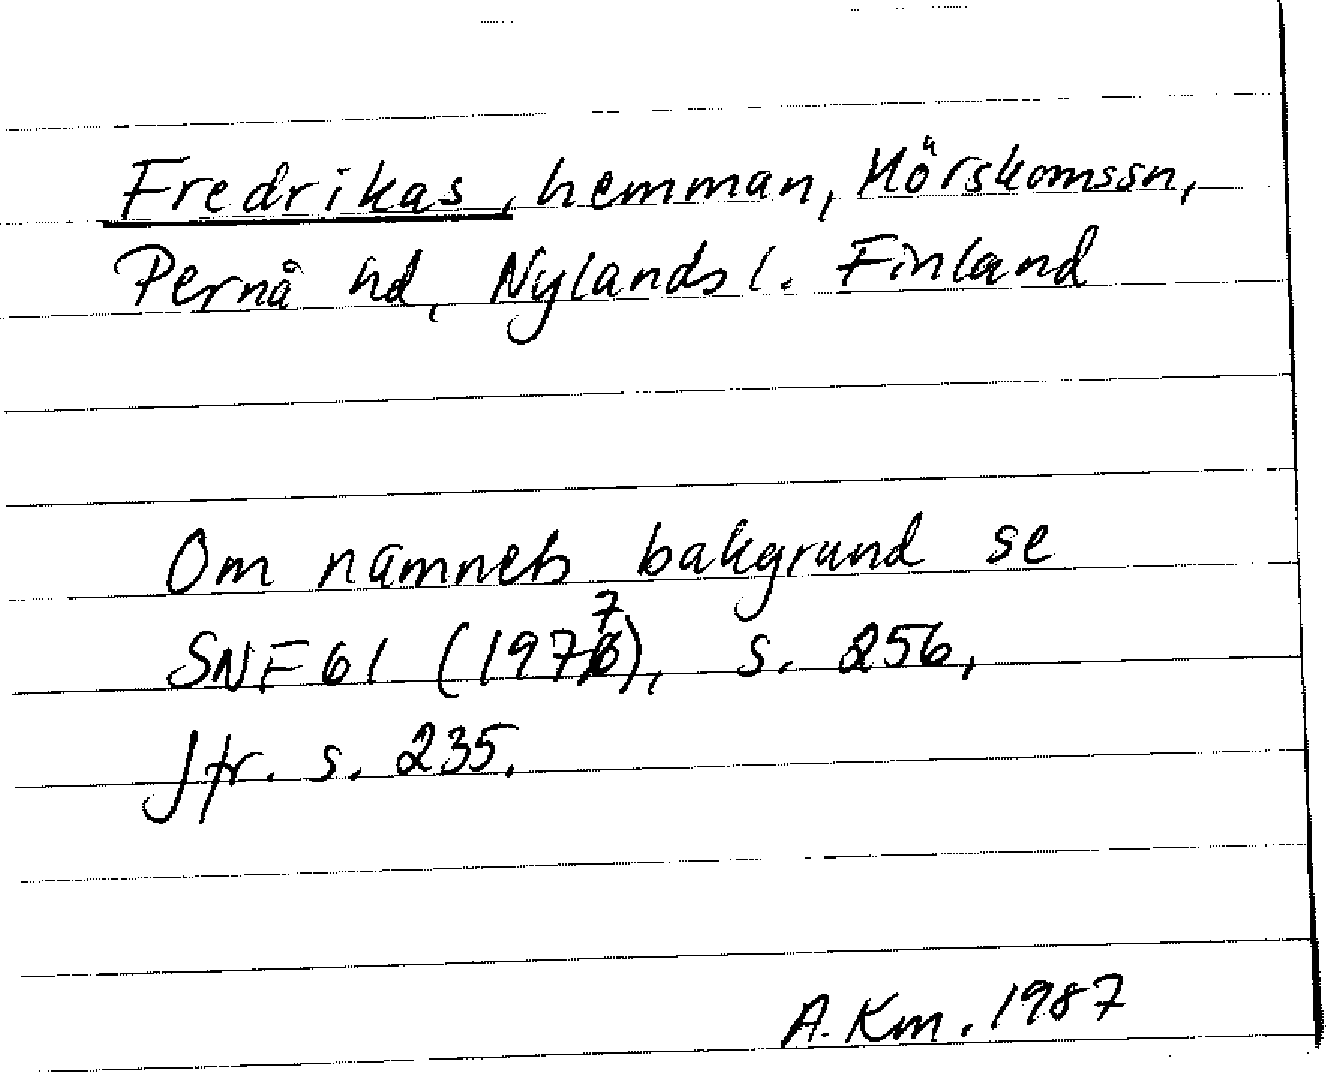 Fredrikas, hemman, Mörskomssn,
Pernå hd, Nylands l. Finland
Om namnets bakgrund se
SNF 61 (1977), s. 256,
jfr. s. 235.
A. Km. 1987